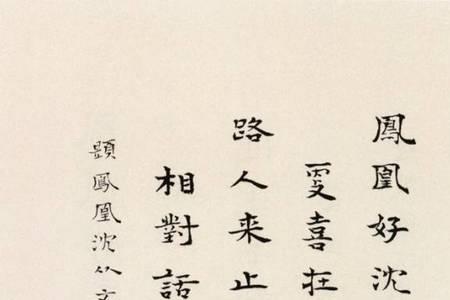 鳳凰好沈
喜在
路人来止
相對話
題鳳凰沈从文